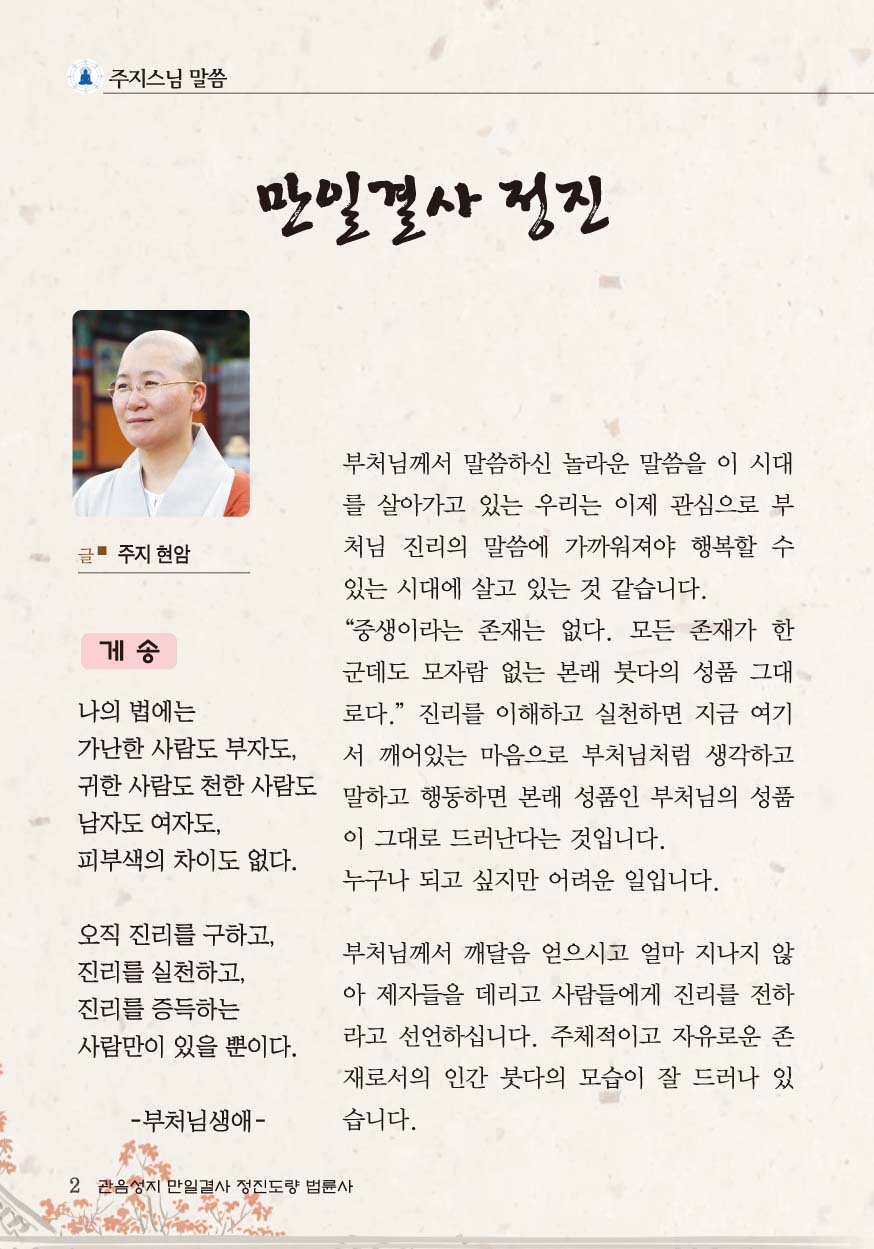 주지스님 말씀
만일결사 정진
글■ 주지 현암
게 송
나의 법에는
가난한 사람도 부자도,
귀한 사람도 천한 사람도
남자도 여자도,
피부색의 차이도 없다.
오직 진리를 구하고,
진리를 실천하고,
진리를 증득하는
사람만이 있을 뿐이다.
-부처님생애-
부처님께서 말씀하신 놀라운 말씀을 이 시대
를 살아가고 있는 우리는 이제 관심으로 부
처님 진리의 말씀에 가까워져야 행복할 수
있는 시대에 살고 있는 것 같습니다.
“중생이라는 존재는 없다. 모든 존재가 한
군데도 모자람 없는 본래 붓다의 성품 그대
로다.” 진리를 이해하고 실천하면 지금 여기
서 깨어있는 마음으로 부처님처럼 생각하고
말하고 행동하면 본래 성품인 부처님의 성품
이 그대로 드러난다는 것입니다.
누구나 되고 싶지만 어려운 일입니다.
부처님께서 깨달음을 얻으시고 얼마 지나지 않
아 제자들을 데리고 사람들에게 진리를 전하
라고 선언하십니다. 주체적이고 자유로운 존
재로서의 인간 붓다의 모습이 잘 드러나 있
습니다.
2 관음성지 만일결사 정진도량 법륜사